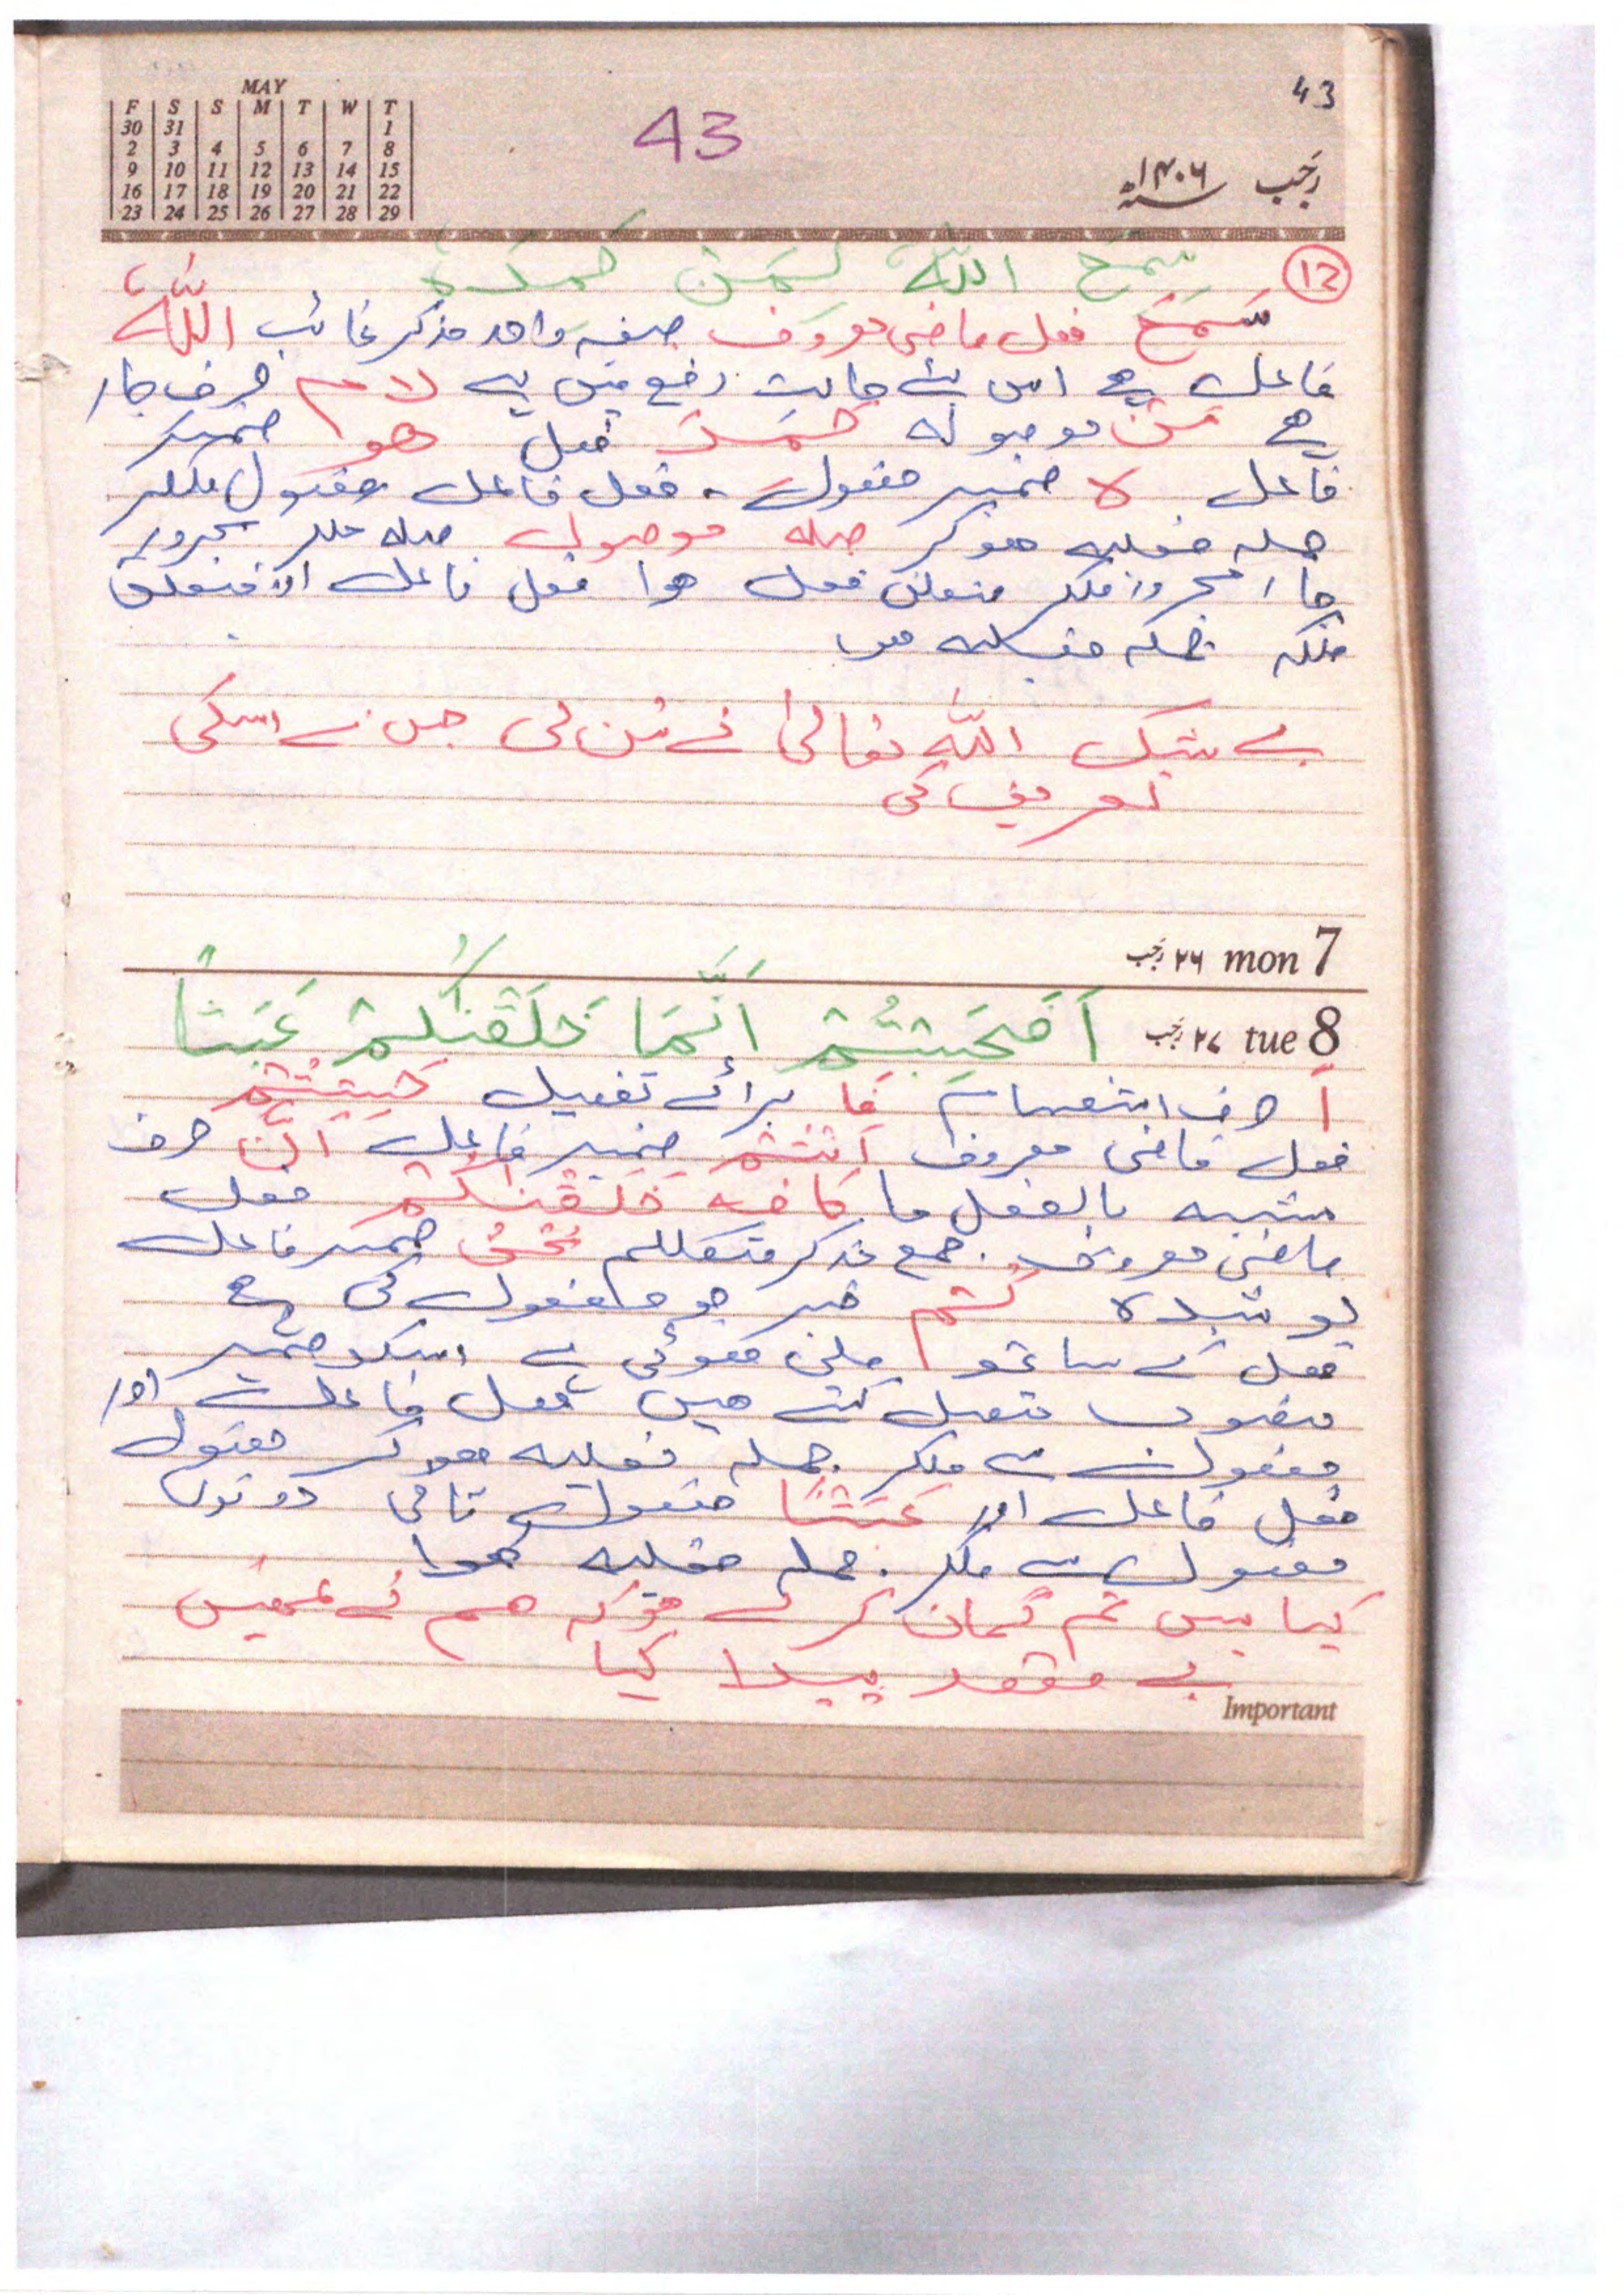 43
MAY
F S S M T W T
30 31 1
2 3 4 5 6 7 8
9 10 11 12 13 14 15
16 17 18 19 20 21 22
23 24 25 26 27 28 29
43
رجب ۱۴۰۶ھ
12 سمع اللہُ لِمَن حمدہ
سَمِعَ فعل ماضی معروف صیغہ واحد مذکر غائب اللّٰہُ
فاعل ہے اس لئے حالت رفع میں ہے لام حرف جار
ہے مَن موصولہ حَمِدَ فعل ھو ضمیر
فاعل ہ ضمیر مفعول۔ فعل فاعل مفعول ملکر
جملہ فعلیہ ھوکر صلہ موصول صلہ ملکر مجرور
جار مجرور ملکر متعلق فعل ھوا فعل فاعل اور متعلق
ملکر جملہ فعلیہ ھوا
بے شک اللّٰہ تعالیٰ نے سن لی جس نے اسکی
تعریف کی
۲۶ رجب mon 7
۲۷ رجب tue 8
اَفَحَسِبْتُمْ اَنَّمَا خَلَقْنٰکُمْ عَبَثًا
أ حرف استفہام فَا برائے تفصیل حَسِبْتُمْ
فعل ماضی معروف اَنْتُمْ ضمیر فاعل اَنَّ حرف
مشبہ بالفعل ما کافہ خَلَقْنٰکُمْ فعل
ماضی معروف جمع مذکر متکلم نَحْنُ ضمیر فاعل
پوشیدہ کُمْ ضمیر جو مفعول کی ہے
فعل کے ساتھ ملی ھوئی ہے اسکو ضمیر
منصوب متصل کہتے ھیں فعل فاعل اور
مفعول سے ملکر جملہ فعلیہ ھوکر مفعول
فعل فاعل اور عَبَثًا مفعول ثانی دونوں
مفعول سے ملکر جملہ فعلیہ ھوا
کیا پس تم گمان کرتے ھو کہ ھم نے تمھیں
بے مقصد پیدا کیا
Important